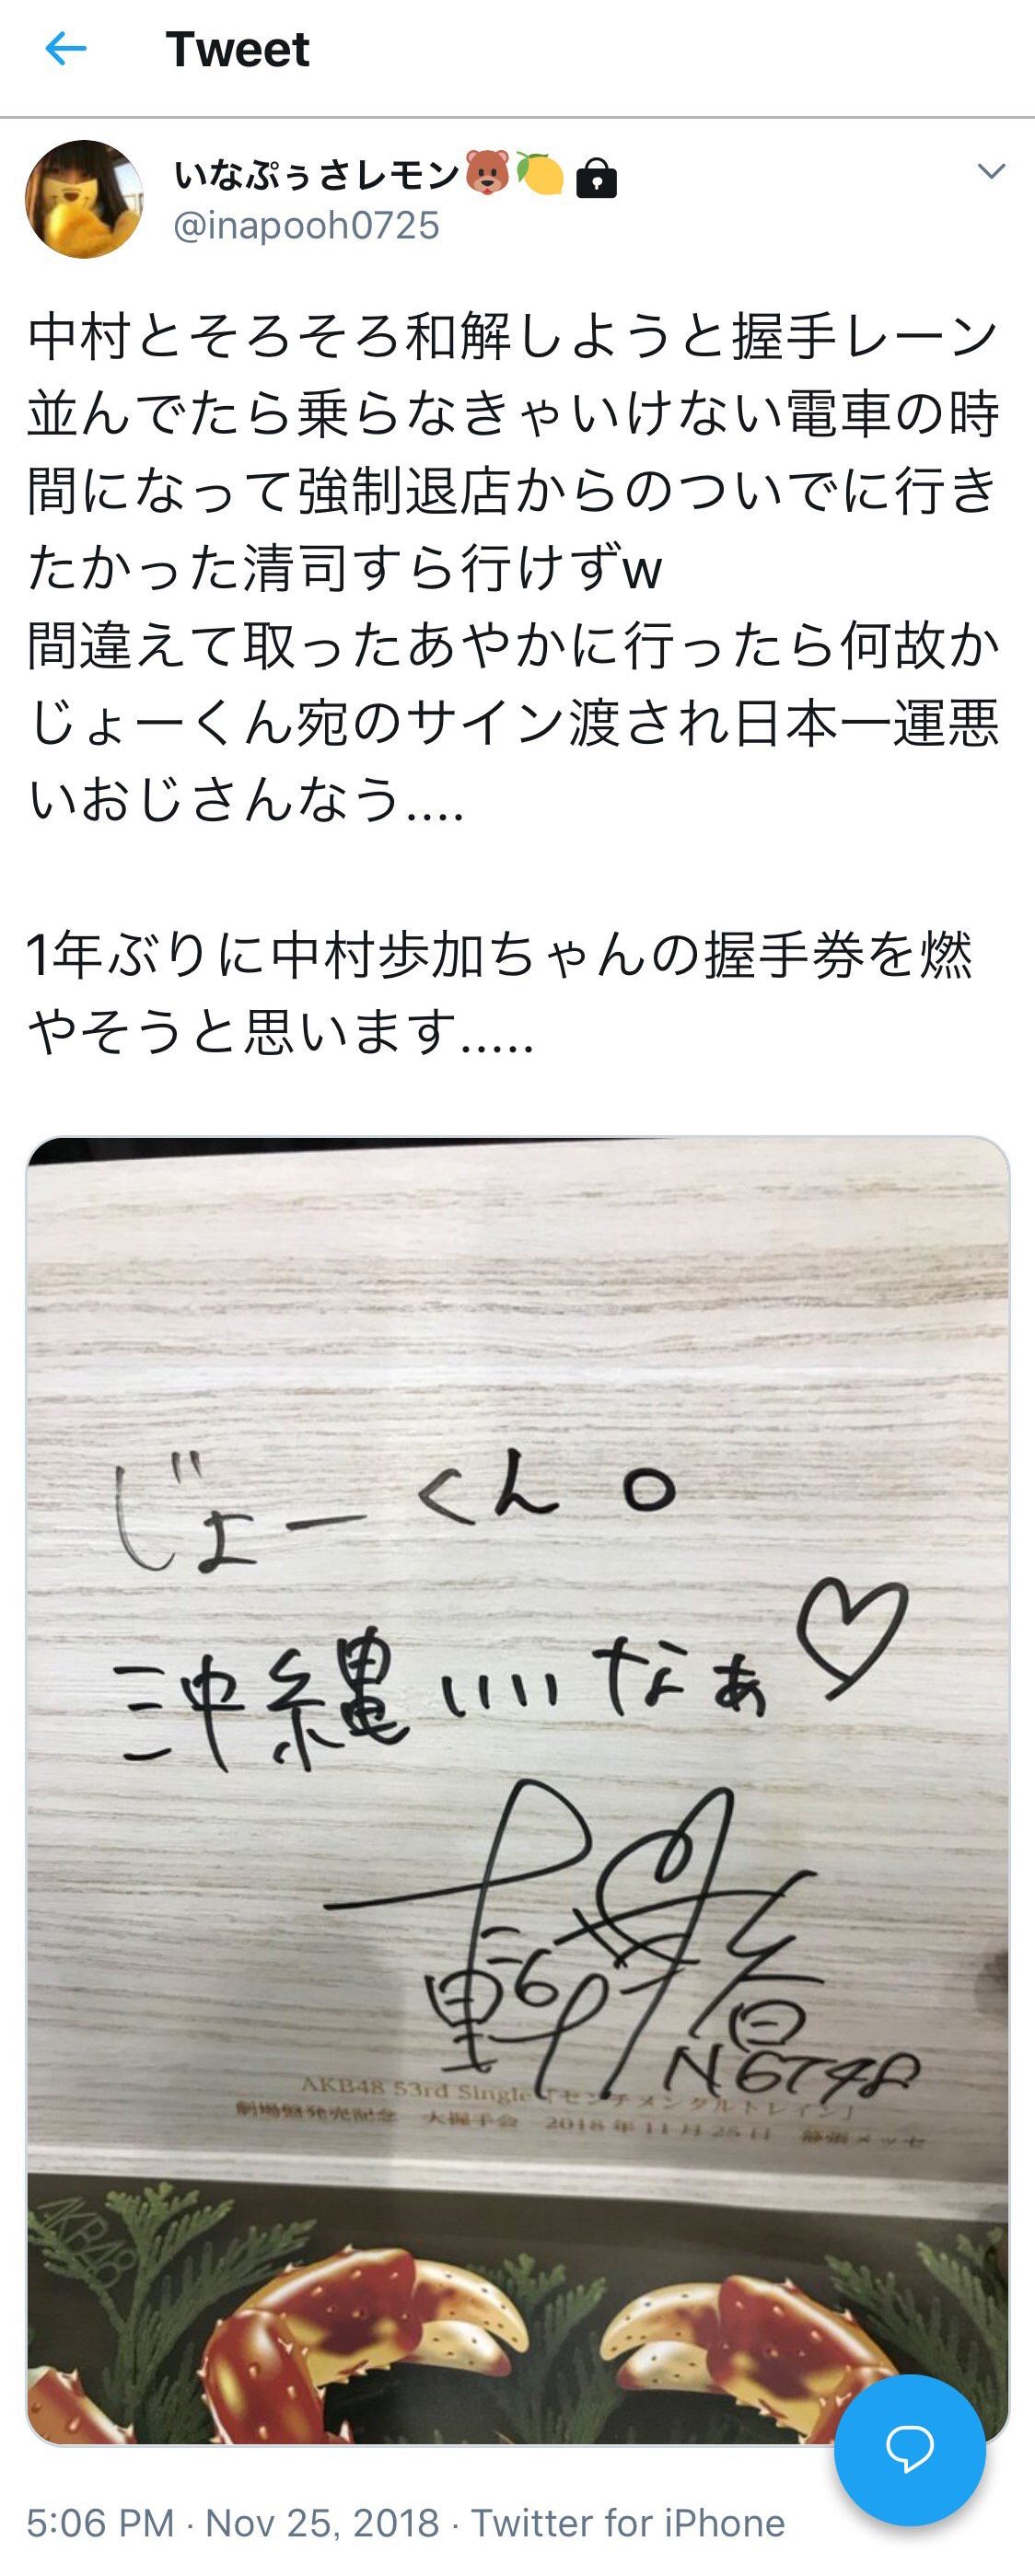 Tweet
いなぷぅさレモン🐻🍋🔒
@inapooh0725
中村とそろそろ和解しようと握手レーン
並んでたら乗らなきゃいけない電車の時
間になって強制退店からのついでに行き
たかった清司すら行けずw
間違えて取ったあやかに行ったら何故か
じょーくん宛のサイン渡され日本一運悪
いおじさんなう....
1年ぶりに中村歩加ちゃんの握手券を燃
やそうと思います.....
じょーくん。
沖縄いいなぁ♡
NGT48
AKB48 53rd Single「センチメンタルトレイン」
劇場盤発売記念 大握手会 2018年11月25日 幕張メッセ
AKB48
5:06 PM · Nov 25, 2018 · Twitter for iPhone